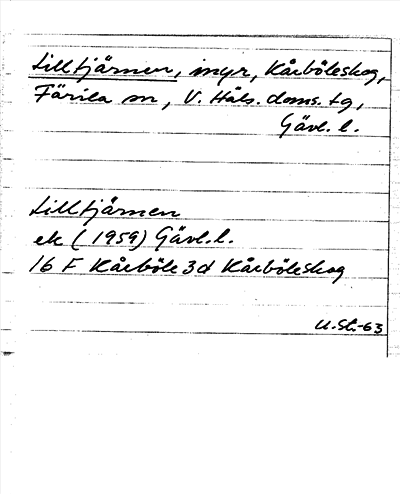 Lilltjärnen, myr, Kårböleskog,
Färila sn, V. Häls. doms. tg,
Gävl. l.
Lilltjärnen
ek (1959) Gävl. l.
16 F Kårböle 3d Kårböleskog
U.St.-63